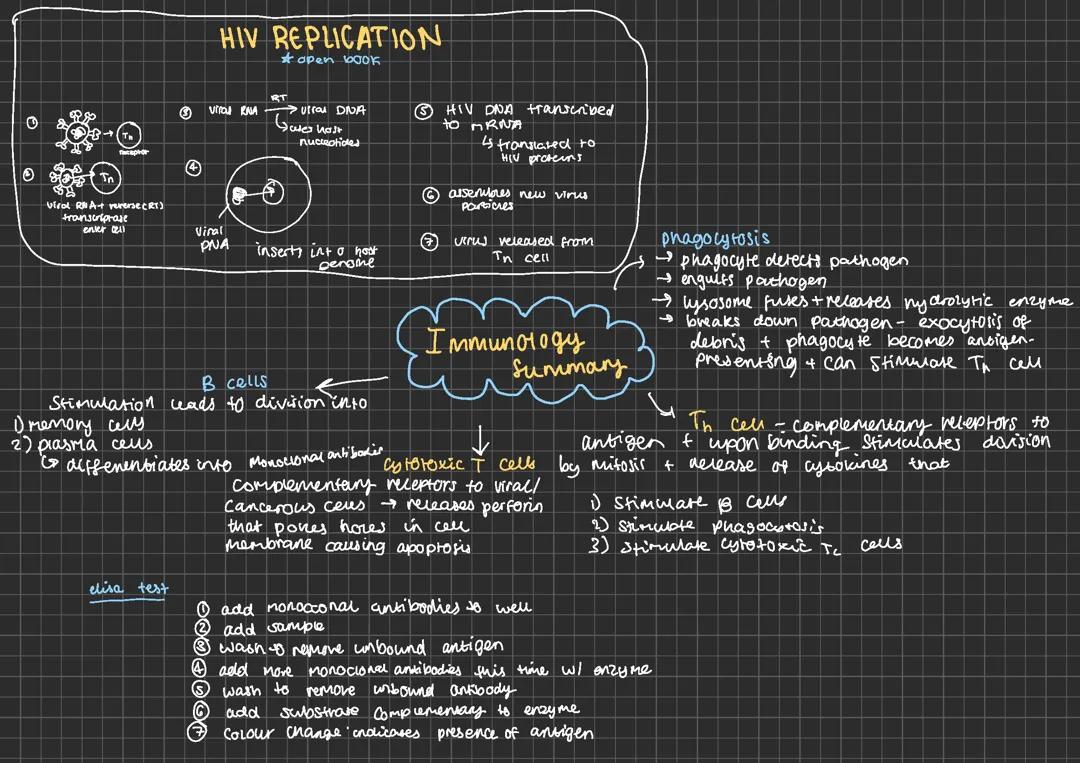 HIV REPLICATION
* open book
①
Tn
receptor
②
Tn
Viral RNA + reverse (RT)
transcriptase
enter cell
③ Viral RNA RT → viral DNA
↳ uses host
nucleotides
④
Viral
DNA
inserts into host
genome
⑤ HIV DNA transcribed
to mRNA
↳ translated to
HIV proteins
⑥ assembles new virus
particles
⑦ virus released from
Tn cell
phagocytosis
→ phagocyte detects pathogen
→ engulfs pathogen
→ lysosome fuses + releases hydrolytic enzyme
→ breaks down pathogen - exocytosis of
debris + phagocyte becomes antigen-
presenting + can stimulate Th cell
Immunology
Summary
B cells
Stimulation leads to division into
1) memory cells
2) plasma cells
↳ differentiates into monoclonal antibodies
cytotoxic T cells
complementary receptors to viral/
cancerous cells → releases perforin
that pokes holes in cell
membrane causing apoptosis
Th cell - complementary receptors to
antigen + upon binding stimulates division
by mitosis + release of cytokines that
1) stimulate B cells
2) stimulate phagocytosis
3) stimulate cytotoxic Tc cells
elisa test
① add monoclonal antibodies to well
② add sample
③ wash to remove unbound antigen
④ add more monoclonal antibodies this time w/ enzyme
⑤ wash to remove unbound antibody
⑥ add substrate complementary to enzyme
⑦ colour change indicates presence of antigen